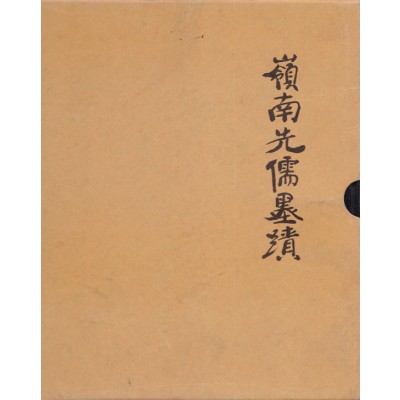 嶺南先儒墨蹟